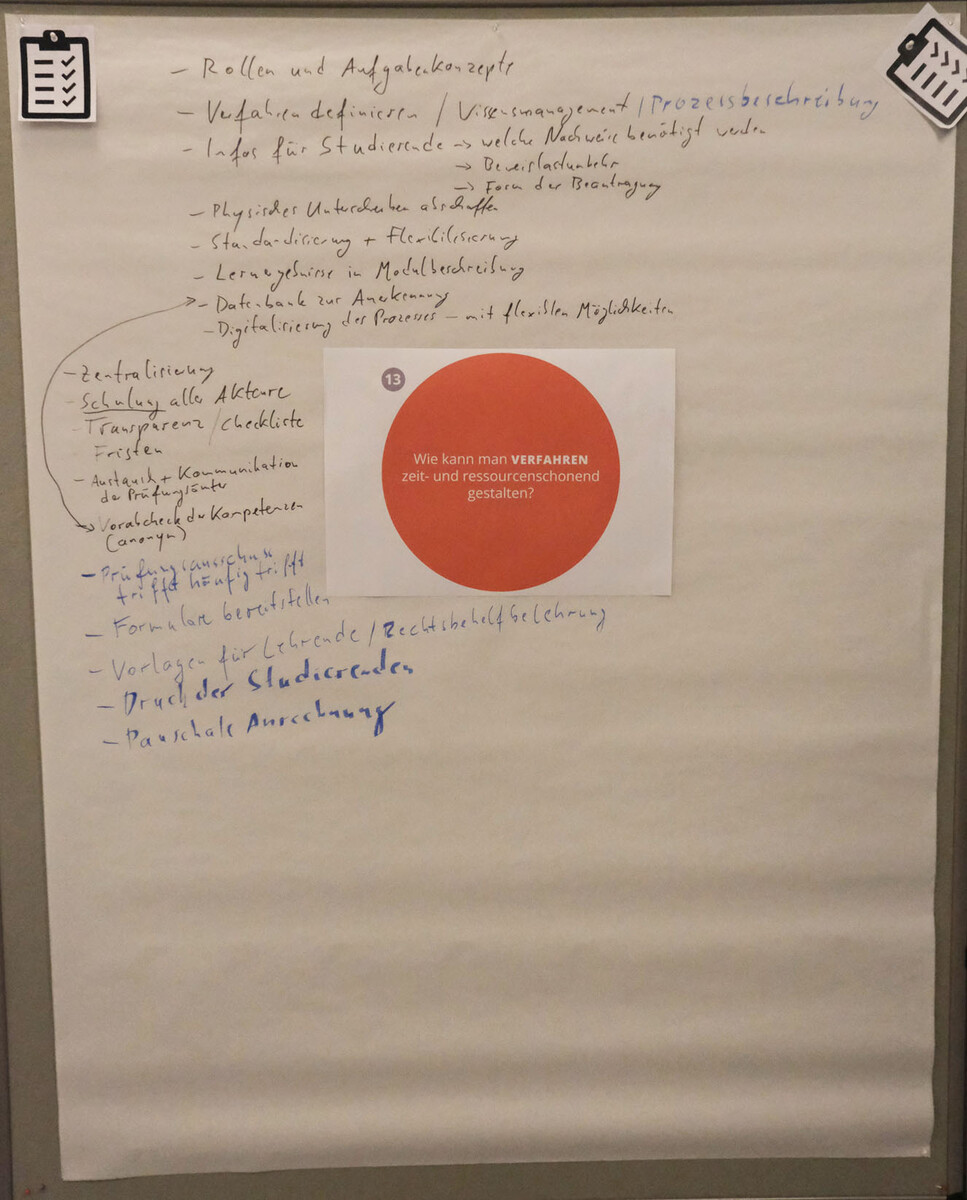 – Rollen und Aufgabenkonzepte
– Verfahren definieren / Wissensmanagement / Prozessbeschreibung
– Infos für Studierende → welche Nachweise benötigt werden
→ Beweislastumkehr
→ Form der Beantragung
– Physisches Unterschreiben abschaffen
– Standardisierung + Flexibilisierung
– Lernergebnisse in Modulbeschreibung
– Datenbank zur Anerkennung
– Digitalisierung des Prozesses – mit flexiblen Möglichkeiten
– Zentralisierung
– Schulung aller Akteure
– Transparenz / Checkliste
Fristen
– Austausch + Kommunikation
der Prüfungsämter
– Vorabcheck der Kompetenzen
(anonym)
13
Wie kann man VERFAHREN
zeit- und ressourcenschonend
gestalten?
– Prüfungsausschuss
trifft häufig trifft
– Formulare bereitstellen
– Vorlagen für Lehrende / Rechtsbehelfbelehrung
– Druck der Studierenden
– Pauschale Anrechnung